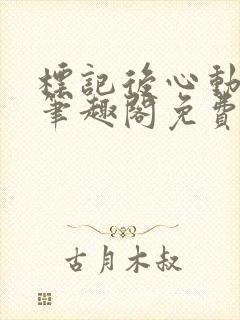 標記後心動
筆趣閣免費
古月木叔